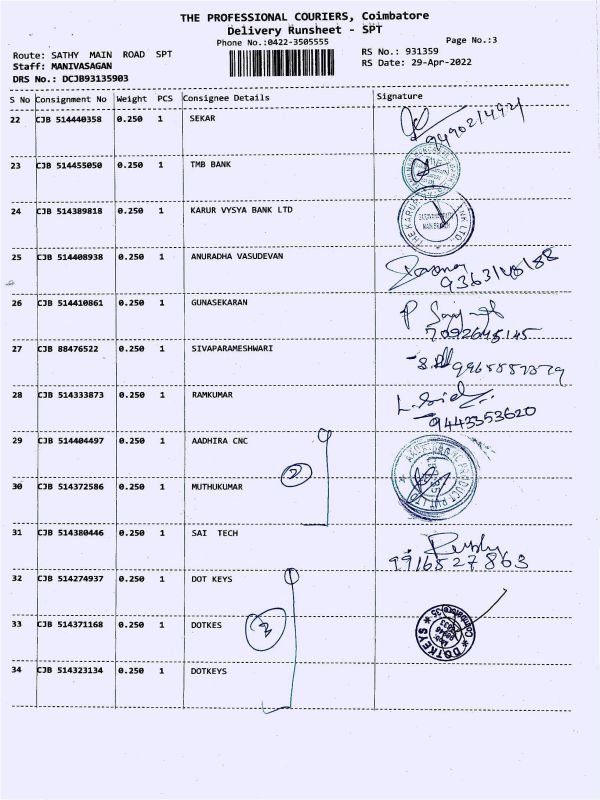 THE PROFESSIONAL COURIERS, Coimbatore
Delivery Runsheet - SPT
Phone No.:0422-3505555
Page No.:3
Route: SATHY MAIN ROAD SPT
RS No.: 931359
Staff: MANIVASAGAN
RS Date: 29-Apr-2022
DRS No.: DCJB93135903
S No Consignment No Weight PCS Consignee Details Signature
22 CJB 514440358 0.250 1 SEKAR
9490214921
23 CJB 514455050 0.250 1 TMB BANK
24 CJB 514389818 0.250 1 KARUR VYSYA BANK LTD
25 CJB 514408938 0.250 1 ANURADHA VASUDEVAN
9363148188
26 CJB 514410861 0.250 1 GUNASEKARAN
7092645145
27 CJB 88476522 0.250 1 SIVAPARAMESHWARI
28 CJB 514333873 0.250 1 RAMKUMAR
9443353620
29 CJB 514404497 0.250 1 AADHIRA CNC
2
30 CJB 514372586 0.250 1 MUTHUKUMAR
31 CJB 514380446 0.250 1 SAI TECH
9916527863
32 CJB 514274937 0.250 1 DOT KEYS
33 CJB 514371168 0.250 1 DOTKES
3
DOTKEYS
34 CJB 514323134 0.250 1 DOTKEYS